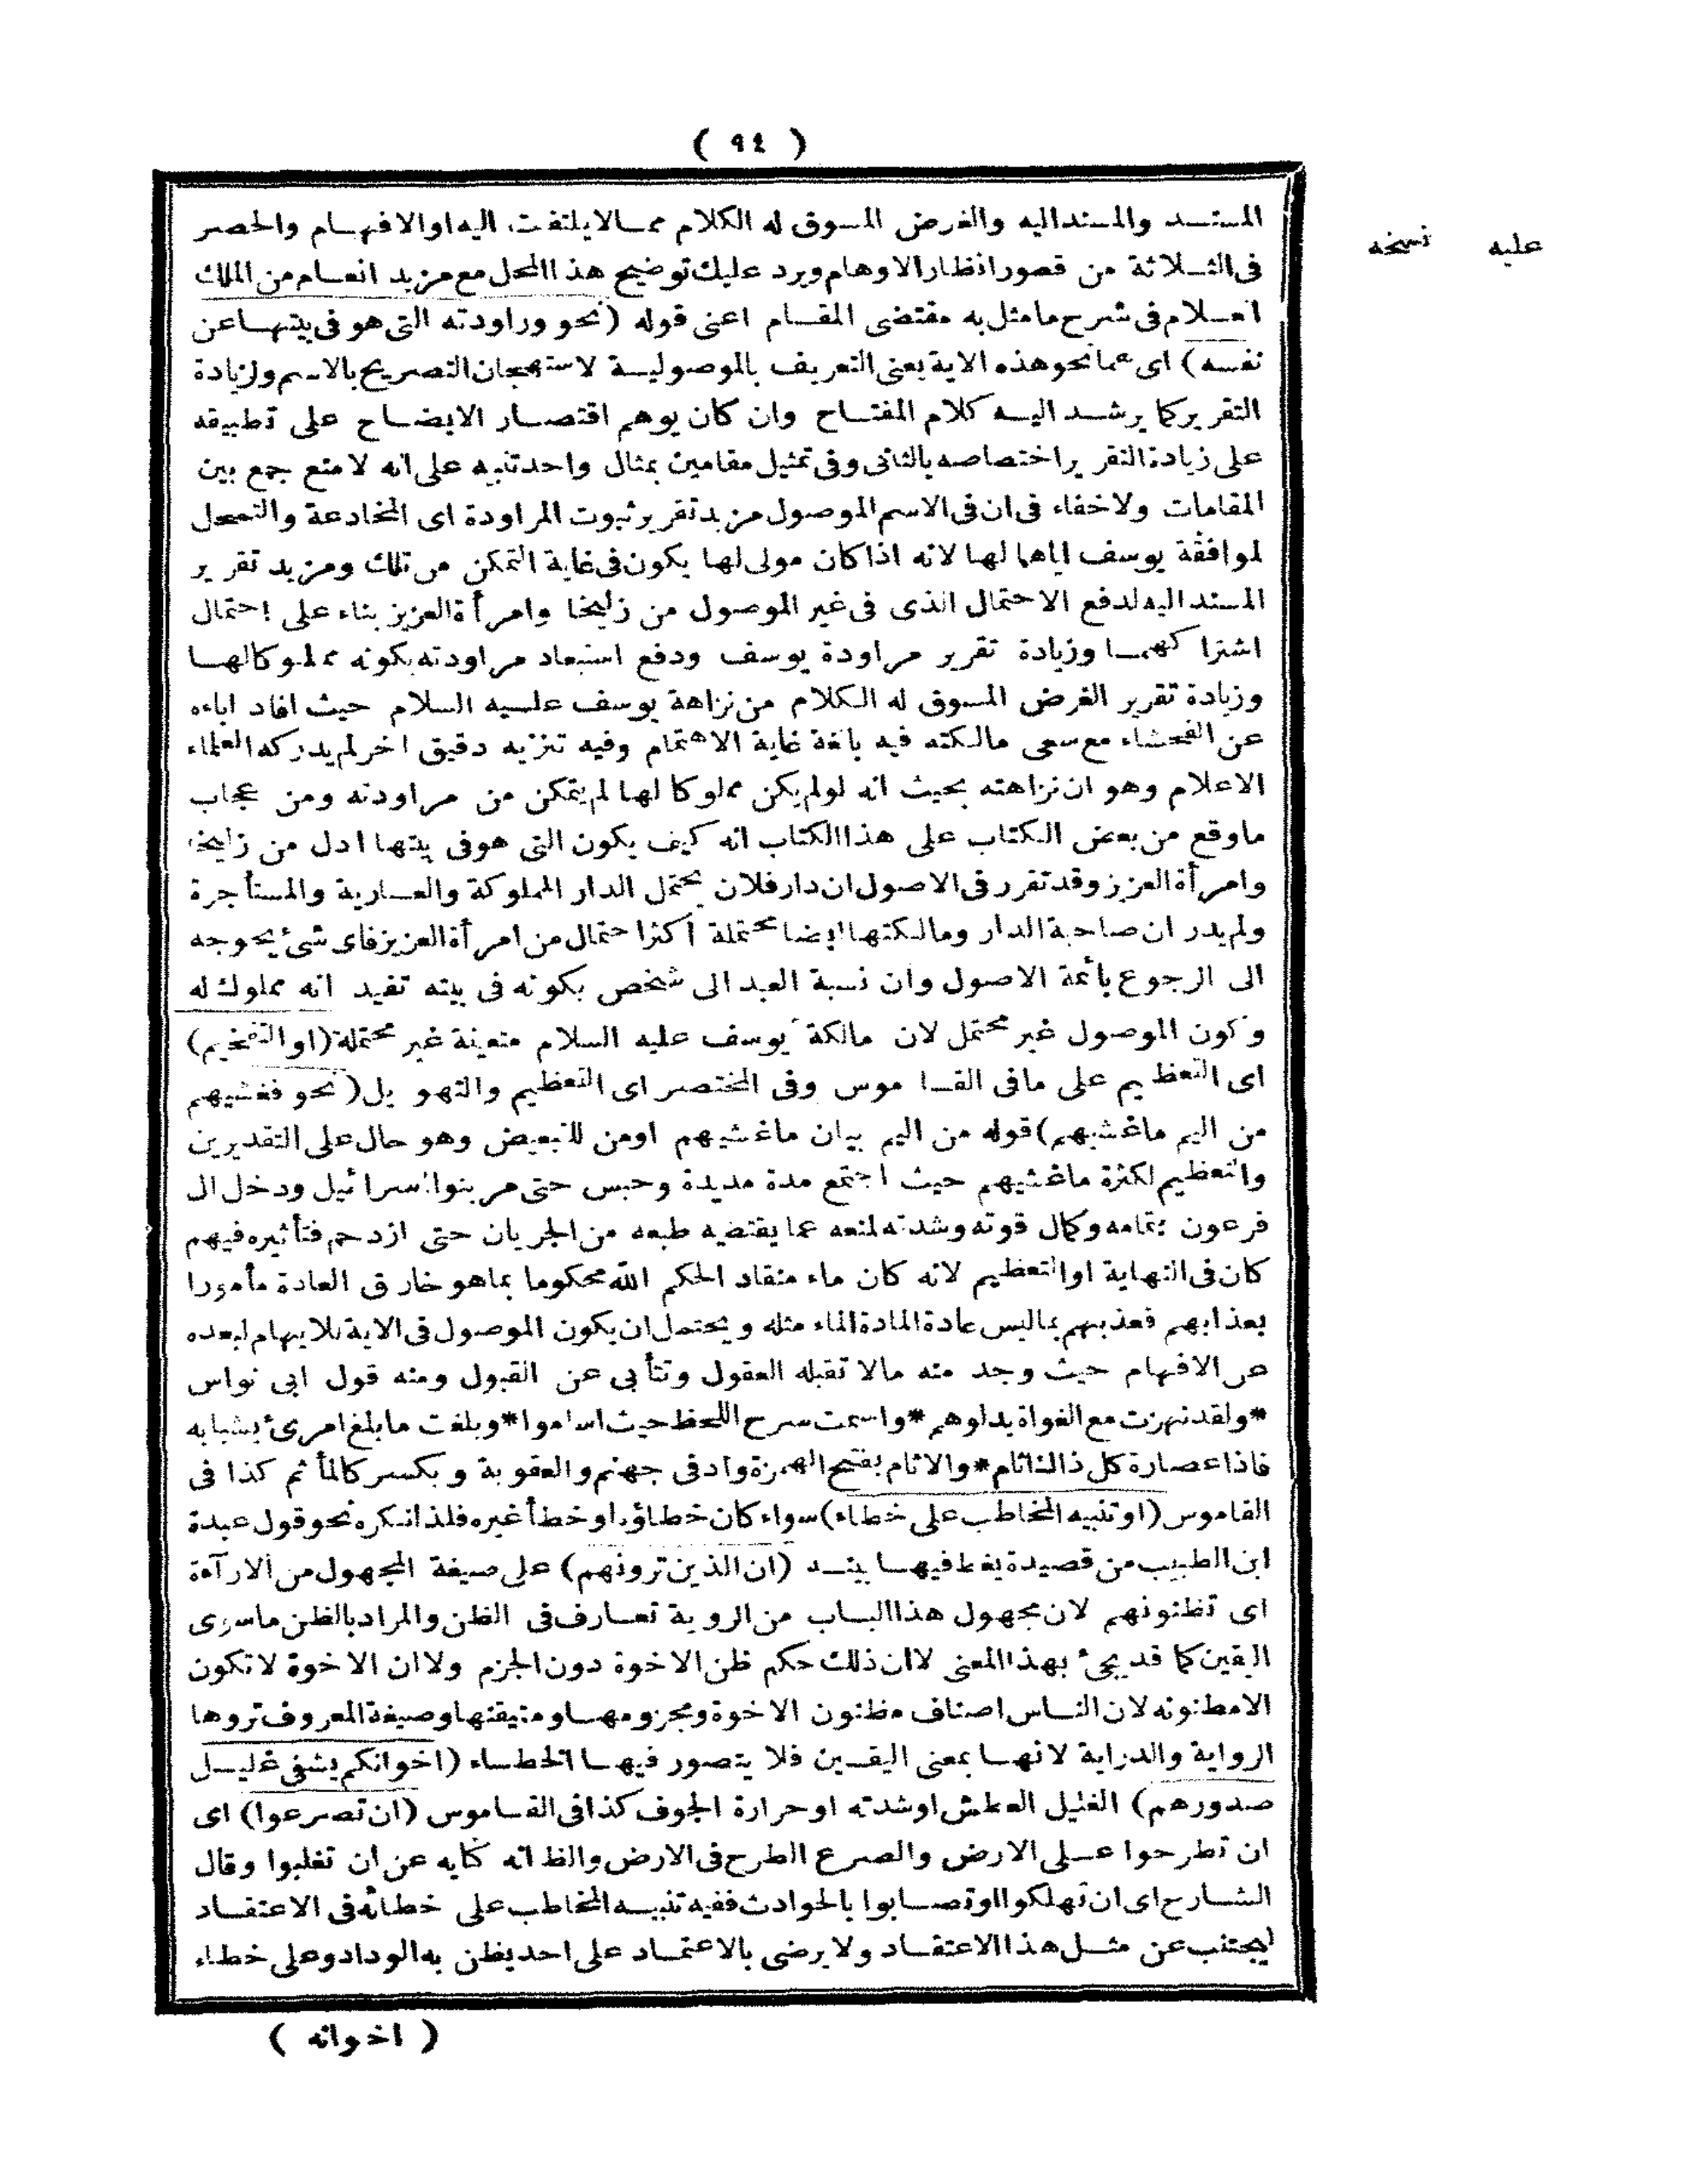 ( ٩٤ )
المسند والمسنداليه والغرض المسوق له الكلام ممالايلتفت اليه اوالافهام والحصر
عليه نسخه
فى الثلاثة من قصور انظار الاوهام ويرد عليك توضيح هذا المحل مع مزيد انعام من الملك
العلام فى شرح مامثل به مقتضى المقام اعنى قوله (نحو وراودته التى هو فى بيتها عن
نفسه) اى ممانحو هذه الاية يعنى التعريف بالموصولية لاستهجان التصريح بالاسم ولزيادة
التقرير كما يرشد اليه كلام المفتاح وان كان يوهم اقتصار الايضاح على تطبيقه
على زيادة التقرير اختصاصه بالثانى وفى تمثيل مقامين بمثال واحد تنبيه على انه لا منع جمع بين
المقامات ولا خفاء فى ان فى الاسم الموصول مزيد تقرير ثبوت المراودة اى المخادعة والتمحل
لموافقة يوسف اياها لها لانه اذا كان مولى لها يكون فى غاية التمكن من تلك ومزيد تقرير
المسنداليه لدفع الاحتمال الذى فى غير الموصول من زليخا وامرأة العزيز بناء على احتمال
اشتراكهما وزيادة تقرير مراودة يوسف ودفع استبعاد مراودته بكونه مملوكالها
وزيادة تقرير الغرض المسوق له الكلام من نزاهة يوسف عليه السلام حيث افاد اباءه
عن الفحشاء مع سعى مالكته فيه بالغة غاية الاهتمام وفيه تنزيه دقيق اخر لم يدركه العلماء
الاعلام وهو ان نزاهته بحيث انه لولم يكن مملوكا لها لم يتمكن من مراودته ومن عجاب
ماوقع من بعض الكتاب على هذا الكتاب انه كيف يكون التى هو فى بيتها ادل من زليخا
وامرأة العزيز وقد تقرر فى الاصول ان دار فلان يحتمل الدار المملوكة والعارية والمستأجرة
ولم يدر ان صاحبة الدار ومالكتها ايضا محتملة أكثر احتمال من امرأة العزيز فاى شئ يحوجه
الى الرجوع بأئمة الاصول وان نسبة العبد الى شخص بكونه فى بيته تفيد انه مملوك له
وكون الموصول غير محتمل لان مالكة يوسف عليه السلام متعينة غير محتملة (او التفخيم)
اى التعظيم على مافى القاموس وفى المختصر اى التعظيم والتهويل (نحو فغشيهم
من اليم ماغشيهم) قوله من اليم بيان ماغشيهم اومن للتبعيض وهو حال على التقديرين
والتعظيم لكثرة ماغشيهم حيث اجتمع مدة مديدة وحبس حتى مر بنوا اسرائيل ودخل ال
فرعون بتمامه وكمال قوته وشدته لمنعه عما يقتضيه طبعه من الجريان حتى ازدحم فتأثيره فيهم
كان فى النهاية اوالتعظيم لانه كان ماء منقاد الحكم الله محكوما بماهو خارق العادة مأمورا
بعذابهم فعذبهم بماليس عادة المادة الماء مثله ويحتمل ان يكون الموصول فى الاية للايهام لبعده
عن الافهام حيث وجد منه مالا تقبله العقول وتتأبى عن القبول ومنه قول ابى نواس
*ولقد نهزت مع الغواة بدلوهم*واسمت سرح اللحظ حيث اساموا*وبلغت مابلغ امرئ بشبابه
فاذا عصارة كل ذاك اثام*والاثام بفتح الهمزة واد فى جهنم والعقوبة وبكسر كالمأثم كذا فى
القاموس (او تنبيه المخاطب على خطاء) سواء كان خطاؤه او خطأ غيره فلذا نكره نحو قول عبدة
ابن الطبيب من قصيدة يعظ فيها بنيه (ان الذين ترونهم) على صيغة المجهول من الارآءة
اى تظنونهم لان مجهول هذا الباب من الروية تعارف فى الظن والمراد بالظن ماسوى
اليقين كما قد يجئ بهذا المعنى لاان ذلك حكم ظن الاخوة دون الجزم ولا ان الاخوة لاتكون
الامظنونه لان الناس اصناف مظنون الاخوة ومجزومها ومتيقنها وصيغة المعروف تروها
الرواية والدراية لانها بمعنى اليقين فلا يتصور فيها الخطاء (اخوانكم يشفى غليل
صدورهم) الغليل العطش اوشدته او حرارة الجوف كذافى القاموس (ان تصرعوا) اى
ان تطرحوا على الارض والصرع الطرح فى الارض والظ انه كنايه عن ان تغلبوا وقال
الشارح اى ان تهلكوا اوتصابوا بالحوادث ففيه تنبيه المخاطب على خطائه فى الاعتقاد
ليجتنب عن مثل هذا الاعتقاد ولا يرضى بالاعتماد على احد يظن به الوداد وعلى خطاء
( اخوانه )